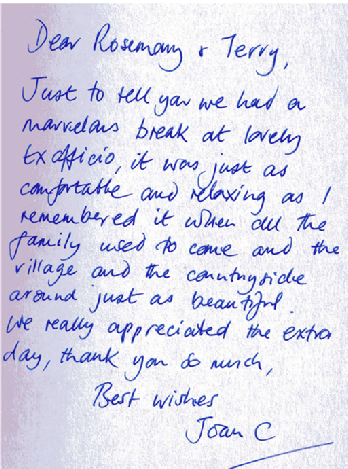 Dear Rosemary & Terry,
Just to tell you we had a
marvelous break at lovely
Ex officio, it was just as
comfortable and relaxing as I
remembered it when all the
family used to come and the
village and the countryside
around just as beautiful.
We really appreciated the extra
day, thank you so much,
Best wishes
Joan C